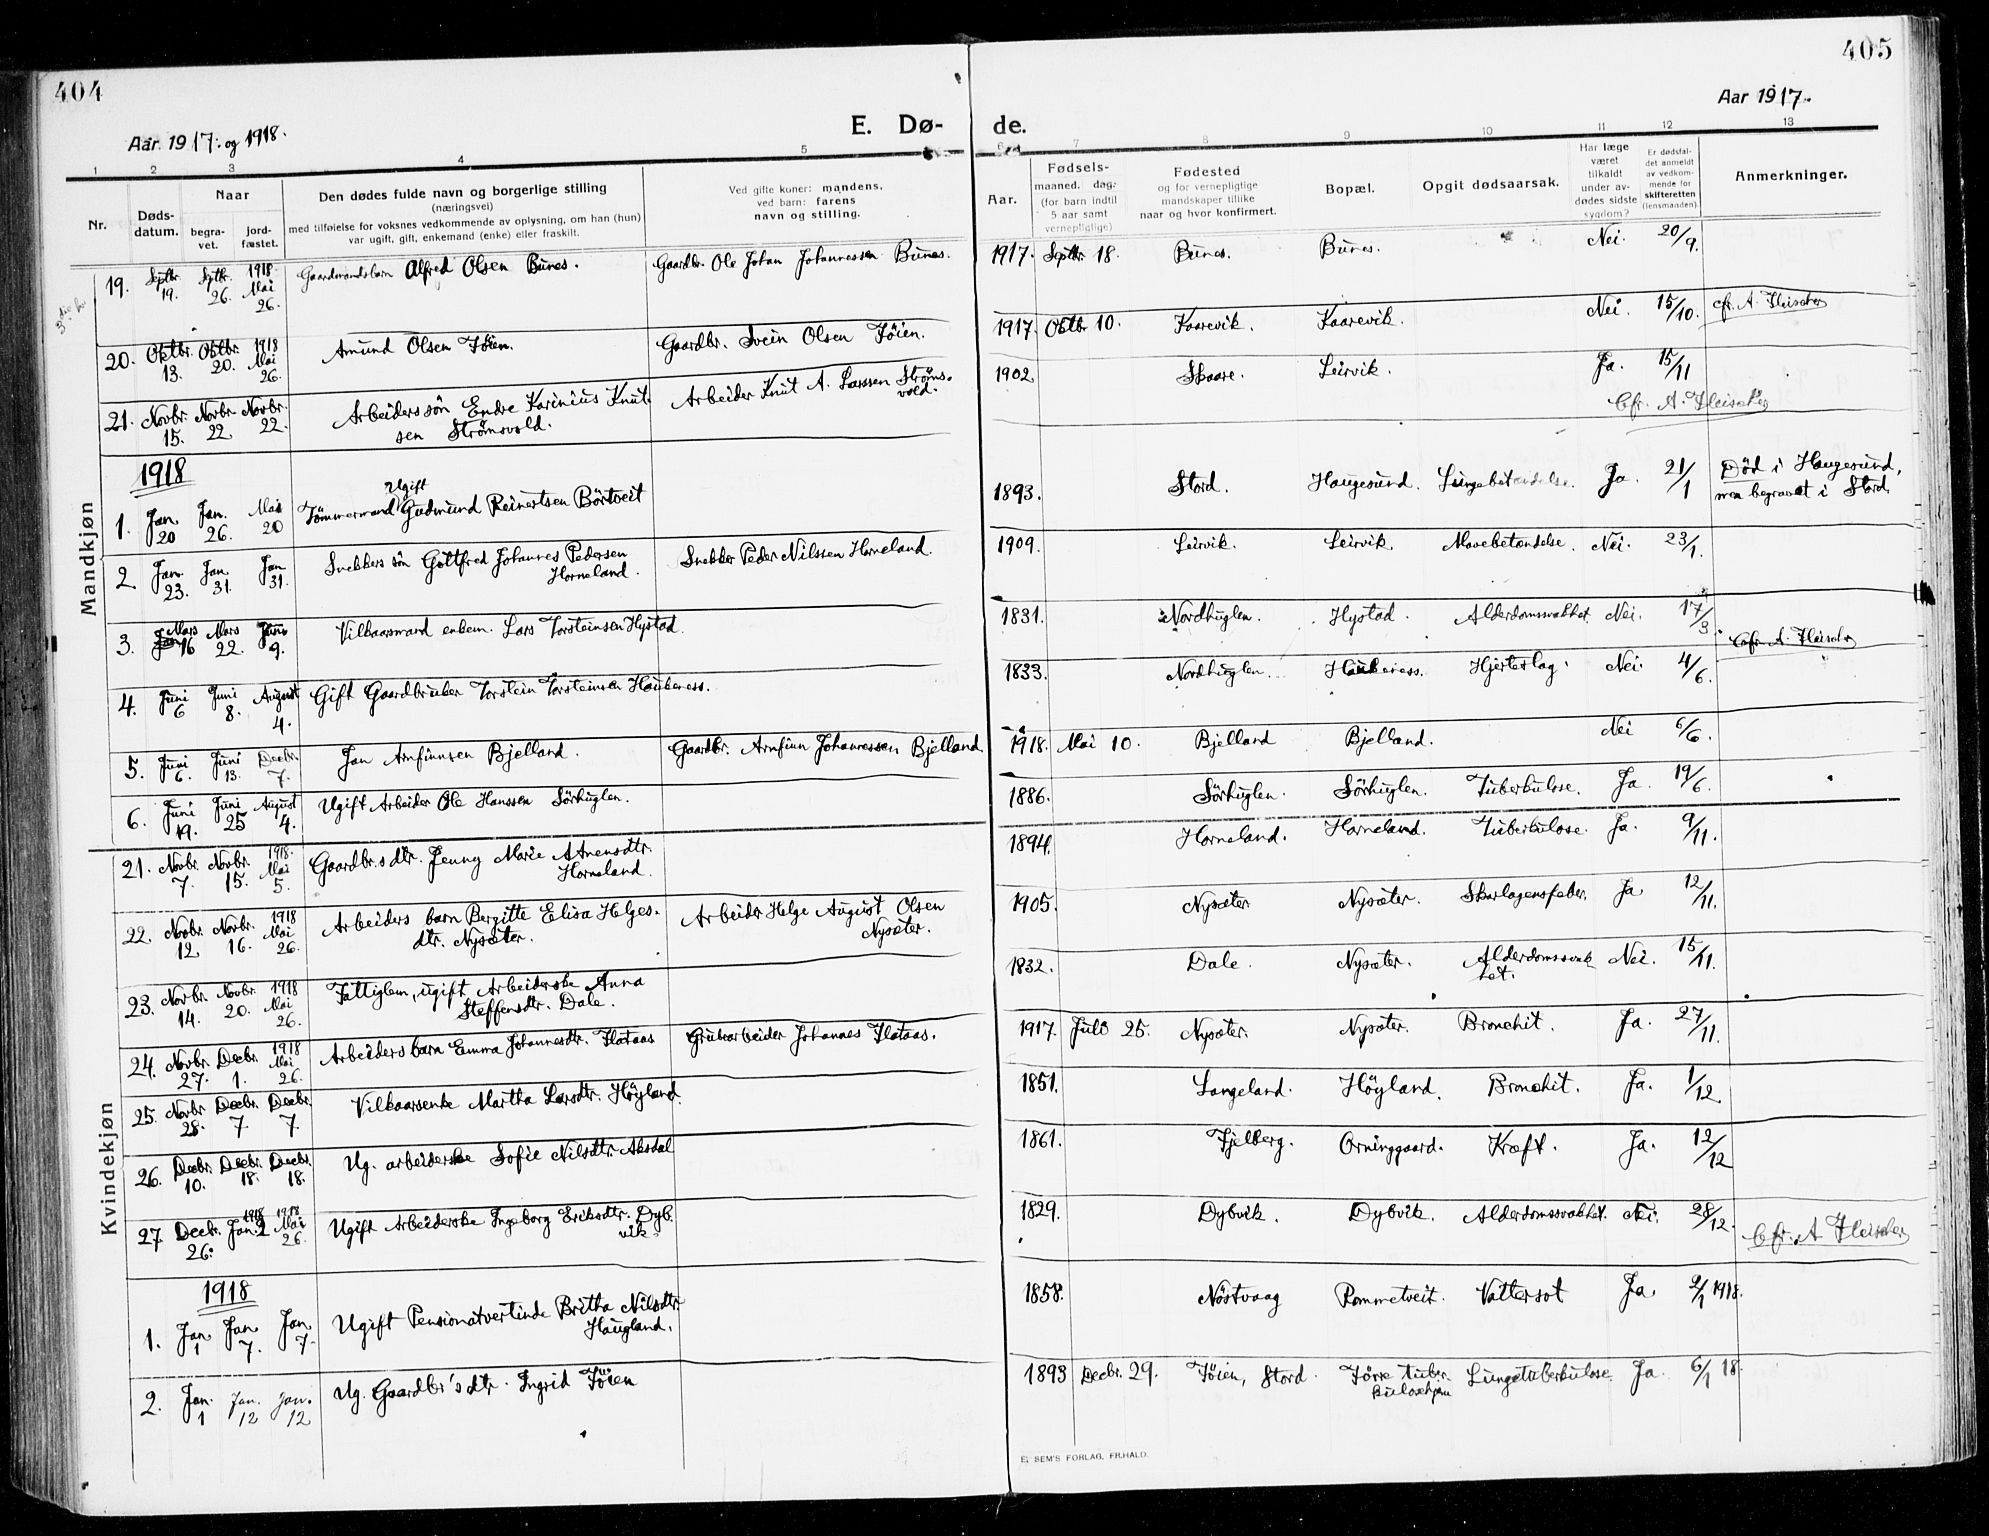 404
405
Aar 1917. og 1918.
E. Dø-
de.
Aar 1917.
1 2 3 4 5
6 7 8 9 10 11 12 13
Nr.
Døds-
datum.
Naar
begra-
vet.
jord-
fæstet.
Den dødes fulde navn og borgerlige stilling
(næringsvei)
med tilføielse for voksnes vedkommende av oplysning, om han (hun)
var ugift, gift, enkemand (enke) eller fraskilt.
Ved gifte koner: mandens,
ved barn: farens
navn og stilling.
Aar.
Fødsels-
maaned. dag.
(for barn indtil
5 aar samt
vernepligtige)
Fødested
og for vernepligtige
mandskaper tillike
naar og hvor konfirmert.
Bopæl.
Opgit dødsaarsak.
Har læge
været
tilkaldt
under av-
dødes sidste
sygdom?
Er dødsfal-
det anmeldt
av vedkom-
mende for
skifteretten
(lensmanden)
Anmerkninger.
Mandkjøn
19. Septbr. 19. Septbr. 26. 1918 Mai 26. Gaardmandsbarn Alfred Olsen Bunes. Gaardbr. Ole Johan Johannessen Bunes. 1917. Septbr 18. Bunes. Bunes. Nei. 20/9.
20. Oktbr. 13. Oktbr. 20. 1918 Mai 26. Amund Olsen Tøien. Gaardbr. Svein Olsen Tøien. 1917. Oktbr 10. Kaarevik. Kaarevik. Nei 15/10. cfr. A. Fleischer
21. Novbr. 15. Novbr. 22. Novbr. 22. Arbeiders søn Endre Karinius Knut-
sen Strømsvold. Arbeider Knut A. Larssen Strøms-
vold. 1902 Skaare. Leirvik. Ja. 15/11
Cfr. A. Fleischer
1918
1. Jan. 20 Jan. 26. Mai 20 Ugift
Tömmermand Gudmund Reinertsen Börtveit 1893. Stord. Haugesund. Lungebetændelse. Ja. 21/1 Död i Haugesund,
men begravet i Stord.
2 Jan. 23. Jan. 31. Jan 31. Snekkers søn Gottfred Johannes Pedersen
Horneland. Snekker Peder Nilssen Horneland. 1909. Leirvik. Leirvik. Mavebetændelse. Nei. 23/1.
3. Mars 16 Mars 22. Juni 9. Vilkaarsmand enkem. Lars Torsteinsen Hystad. 1831. Nordhuglen. Hystad. Alderdomssvakhet. Nei. 17/3 Cfr. A. Fleischer
4. Juni 6 Juni 8. August 4. Gift Gaardbruker Torstein Torsteinsen Haukeness. 1833. Nordhuglen. Haukeness. Hjerteslag. Nei. 4/6.
5. Juni 6. Juni 13. Decbr. 7. Jan Arnfinnsen Bjelland. Gaardbr. Arnfinn Johannessen Bjelland 1918. Mai 10. Bjelland Bjelland. Nei 6/6.
6. Juni 19. Juni 25 August 4. Ugift Arbeider Ole Hanssen Sørhuglen. 1886. Sørhuglen. Sørhuglen. Tuberkulose. Ja. 19/6.
Kvindekjøn
21. Novbr. 7. Novbr. 15. 1918. Mai 5. Gaardbr.s dtr. Jenny Marie Anensdtr.
Horneland. 1894. Horneland. Horneland. Tuberkulose. Ja. 9/11.
22. Novbr. 12 Novbr. 16. 1918 Mai 26. Arbeiders barn Bergitte Elisa Helges-
dtr. Nysæter. Arbeider Helge August Olsen
Nysæter. 1905. Nysæter Nysæter. Skarlagensfeber. Ja 12/11.
23. Novbr. 14. Novbr. 20. 1918 Mai 26. Fattiglem, ugift Arbeiderske Anna
Steffensdtr. Dale. 1832. Dale. Nysæter. Alderdomssvak-
het. Nei. 15/11.
24. Novbr. 27. Decbr. 1. 1918 Mai 26. Arbeiders barn Emma Johannesdtr. Flataas Grubearbeider Johannes Flataas. 1917. Juli 25. Nysæter. Nysæter. Bronchit. Ja. 27/11.
25. Novbr 28. Decbr. 7. Decbr. 7. Vilkaarsenke Martha Larsdtr. Höyland. 1851. Langeland. Höyland. Bronchit. Ja. 1/12
26. Decbr. 10. Decbr. 18. Decbr. 18. Ug. arbeiderske Sofie Nilsdtr. Aksdal 1861. Fjelberg. Orninggaard. Kræft. Ja. 12/12
27 Decbr. 26. 1918 Jan. 2 1918 Mai 26. Ugift Arbeiderske Ingeborg Eriksdtr. Dyb-
vik. 1829. Dybvik. Dybvik. Alderdomssvakhet. Nei. 28/12. Cfr. A Fleischer
1918
1. Jan. 1 Jan 7. Jan 7. Ugift Pensionatvertinde Britha Nilsdtr.
Haugland. 1858. Nöstvaag Rommetveit. Vattersot Ja 2/1 1918.
2. Jan. 1 Jan. 12 Jan. 12 Ug. Gaardbr's dtr. Ingrid Tøien 1893 Decbr. 29. Tøien, Stord. Tørre tuber-
kulosehjem Lungetuberkulose. Ja. 6/1 18.
E. SEM'S FORLAG, FR.HALD.